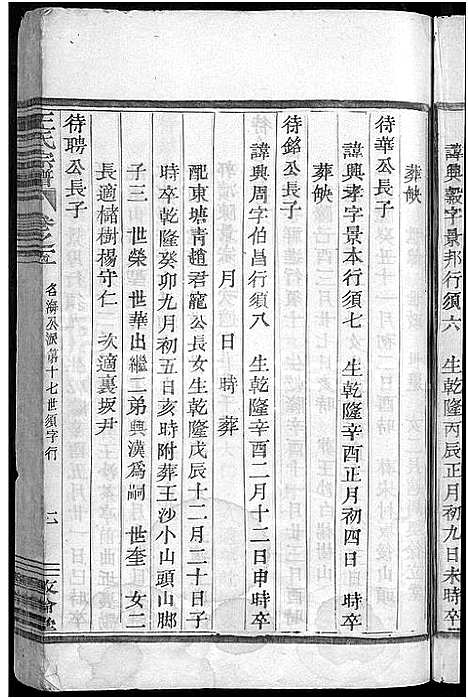 諱興毅字景邦行須六　生乾隆丙辰正月初九日未時卒
葬缺
待華公長子
諱興孝字景本行須七　生乾隆辛酉正月初四日　時卒
葬缺
待銘公長子
諱興周字伯昌行須八　生乾隆辛酉二月十二日申時卒
月　日　時　葬
配東塘青趙君寵公長女生乾隆戊辰十二月二十日子
時卒乾隆癸卯九月初五日亥時附葬王沙小山頭山脚
子三　世榮　世華出繼二弟興漢為嗣　世奎　女二
長適儲樹楊守仁　次適裏坂尹
待聘公長子
王氏宗譜　卷之　名海公派第十七世須字行